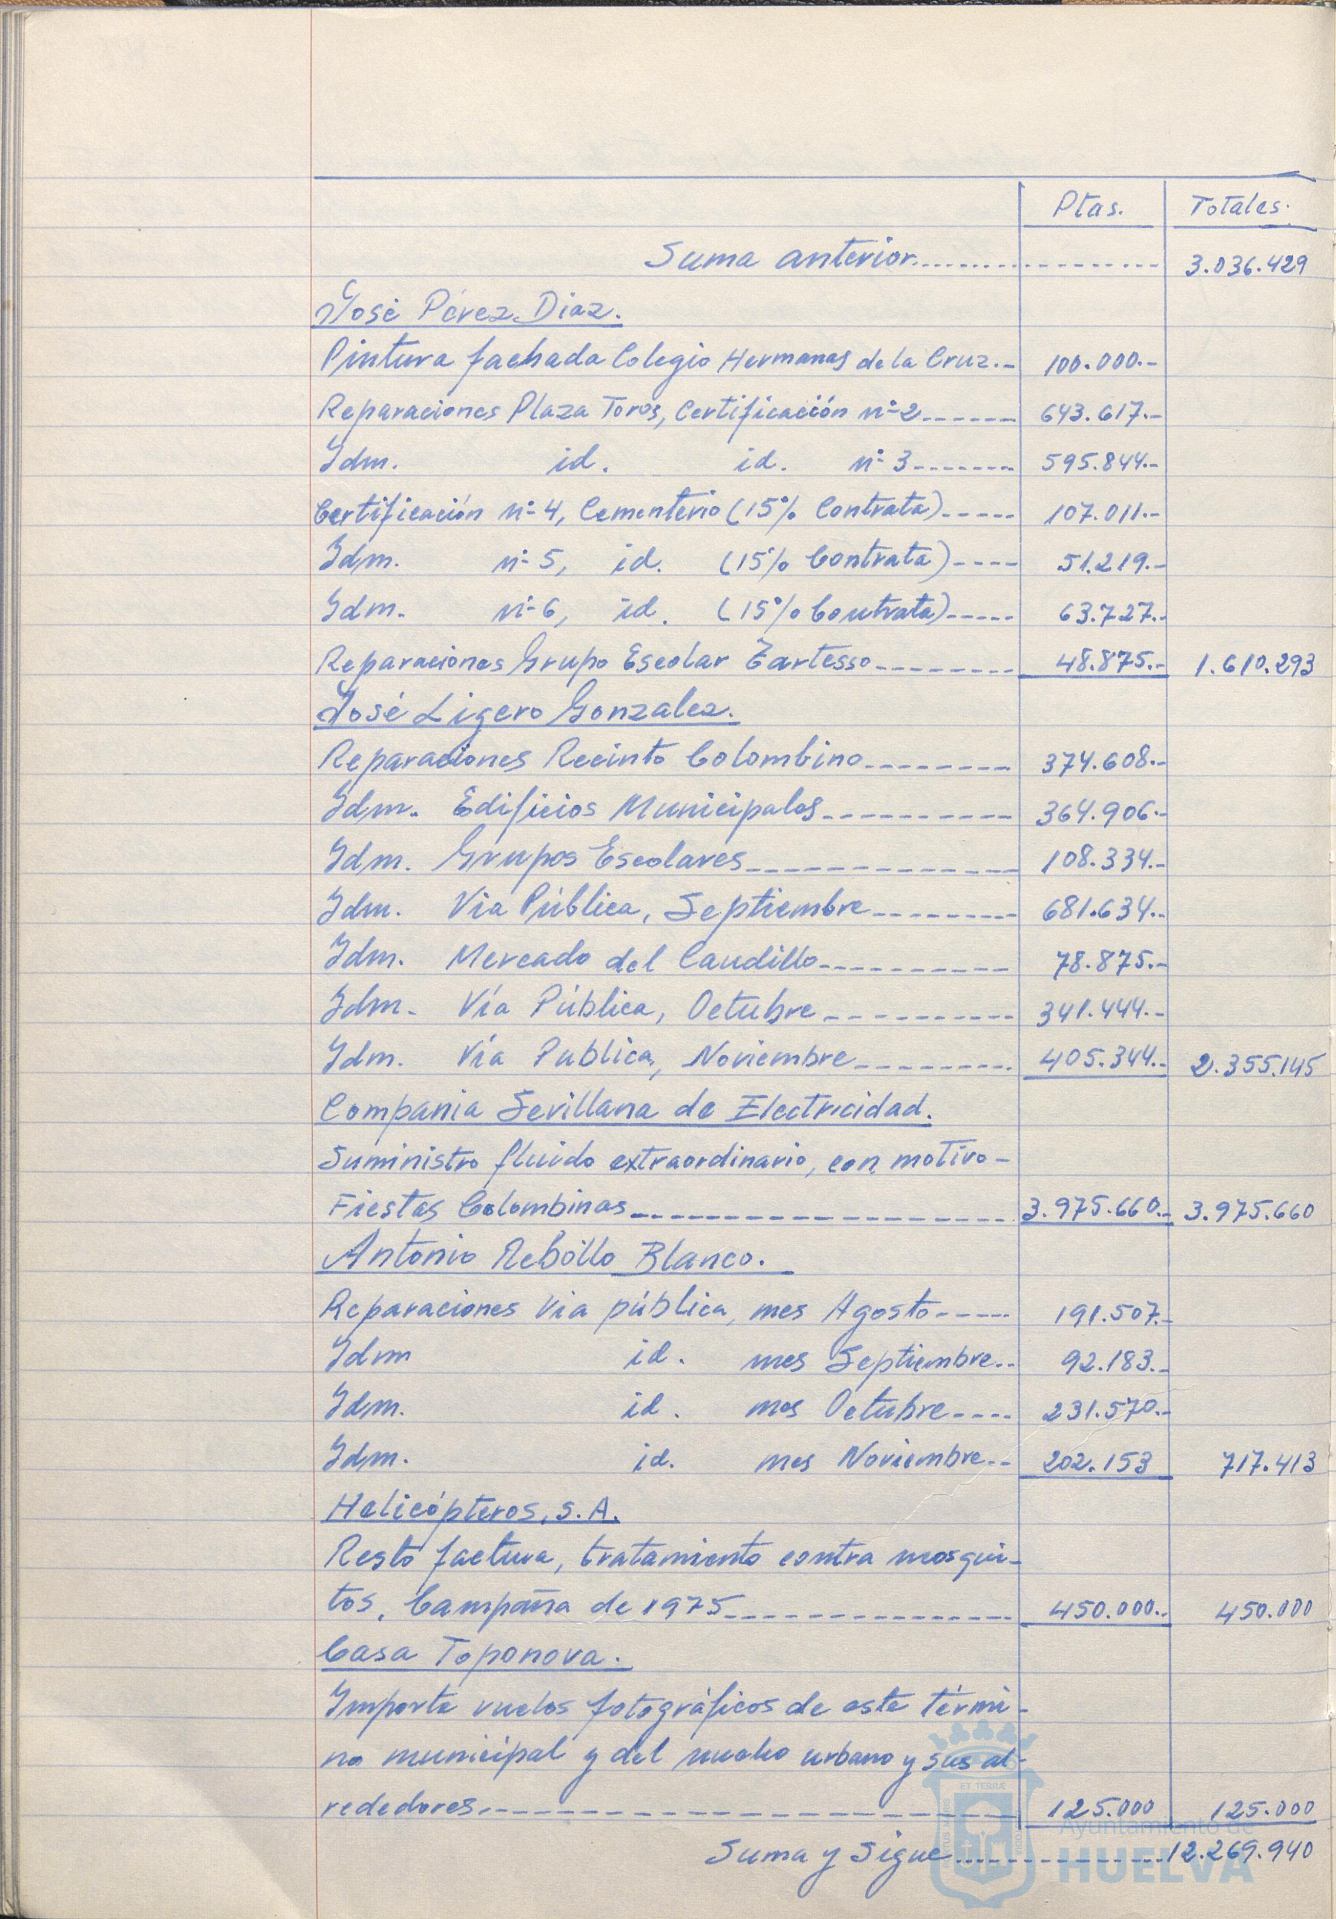 Ptas. Totales.
Suma anterior.................. 3.036.429
José Pérez Diaz.
Pintura fachada Colegio Hermanas de la Cruz.- 100.000.-
Reparaciones Plaza Toros, Certificación nº 2------ 643.617.-
Idm. id. id. nº 3------- 595.844.-
Certificación nº 4, Cementerio (15% Contrata)----- 107.011.-
Idm. nº 5, id. (15% Contrata)---- 51.219.-
Idm. nº 6, id. (15% Contrata)----- 63.727.-
Reparaciones Grupo Escolar Tartesso-------- 48.875.- 1.610.293
José Ligero Gonzalez.
Reparaciones Recinto Colombino--------- 374.608.-
Idm. Edificios Municipales---------- 364.906.-
Idm. Grupos Escolares------------- 108.334.-
Idm. Via Pública, Septiembre--------- 681.634.-
Idm. Mercado del Caudillo---------- 78.875.-
Idm. Vía Pública, Octubre---------- 341.444.-
Idm. Vía Publica, Noviembre--------- 405.344.- 2.355.145
Compania Sevillana de Electricidad.
Suministro fluido extraordinario, con motivo-
Fiestas Colombinas------------------ 3.975.660.- 3.975.660
Antonio Rebollo Blanco.
Reparaciones via pública, mes Agosto----- 191.507.-
Idm id. mes Septiembre.-- 92.183.-
Idm. id. mes Octubre---- 231.570.-
Idm. id. mes Noviembre--- 202.153 717.413
Helicópteros, S.A.
Resto factura, tratamiento contra mosqui-
tos, Campaña de 1975--------------- 450.000.- 450.000
Casa Toponova.
Importe vuelos fotográficos de este térmi-
no municipal y del nucleo urbano y sus al-
rededores.---------------------- 125.000 125.000
Suma y Sigue.................. 12.269.940
Ayuntamiento de
HUELVA